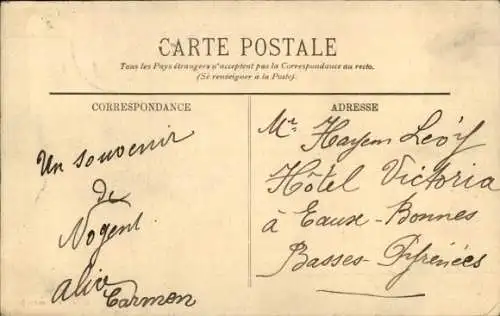 CARTE POSTALE
Tous les Pays étrangers n'acceptent pas la Correspondance au recto.
(Se renseigner à la Poste).
CORRESPONDANCE
Un souvenir
de
Nogent.
alice
Carmen
ADRESSE
Mr Hayem Levÿ
Hôtel Victoria
à Eaux-Bonnes
Basses-Pyrénées